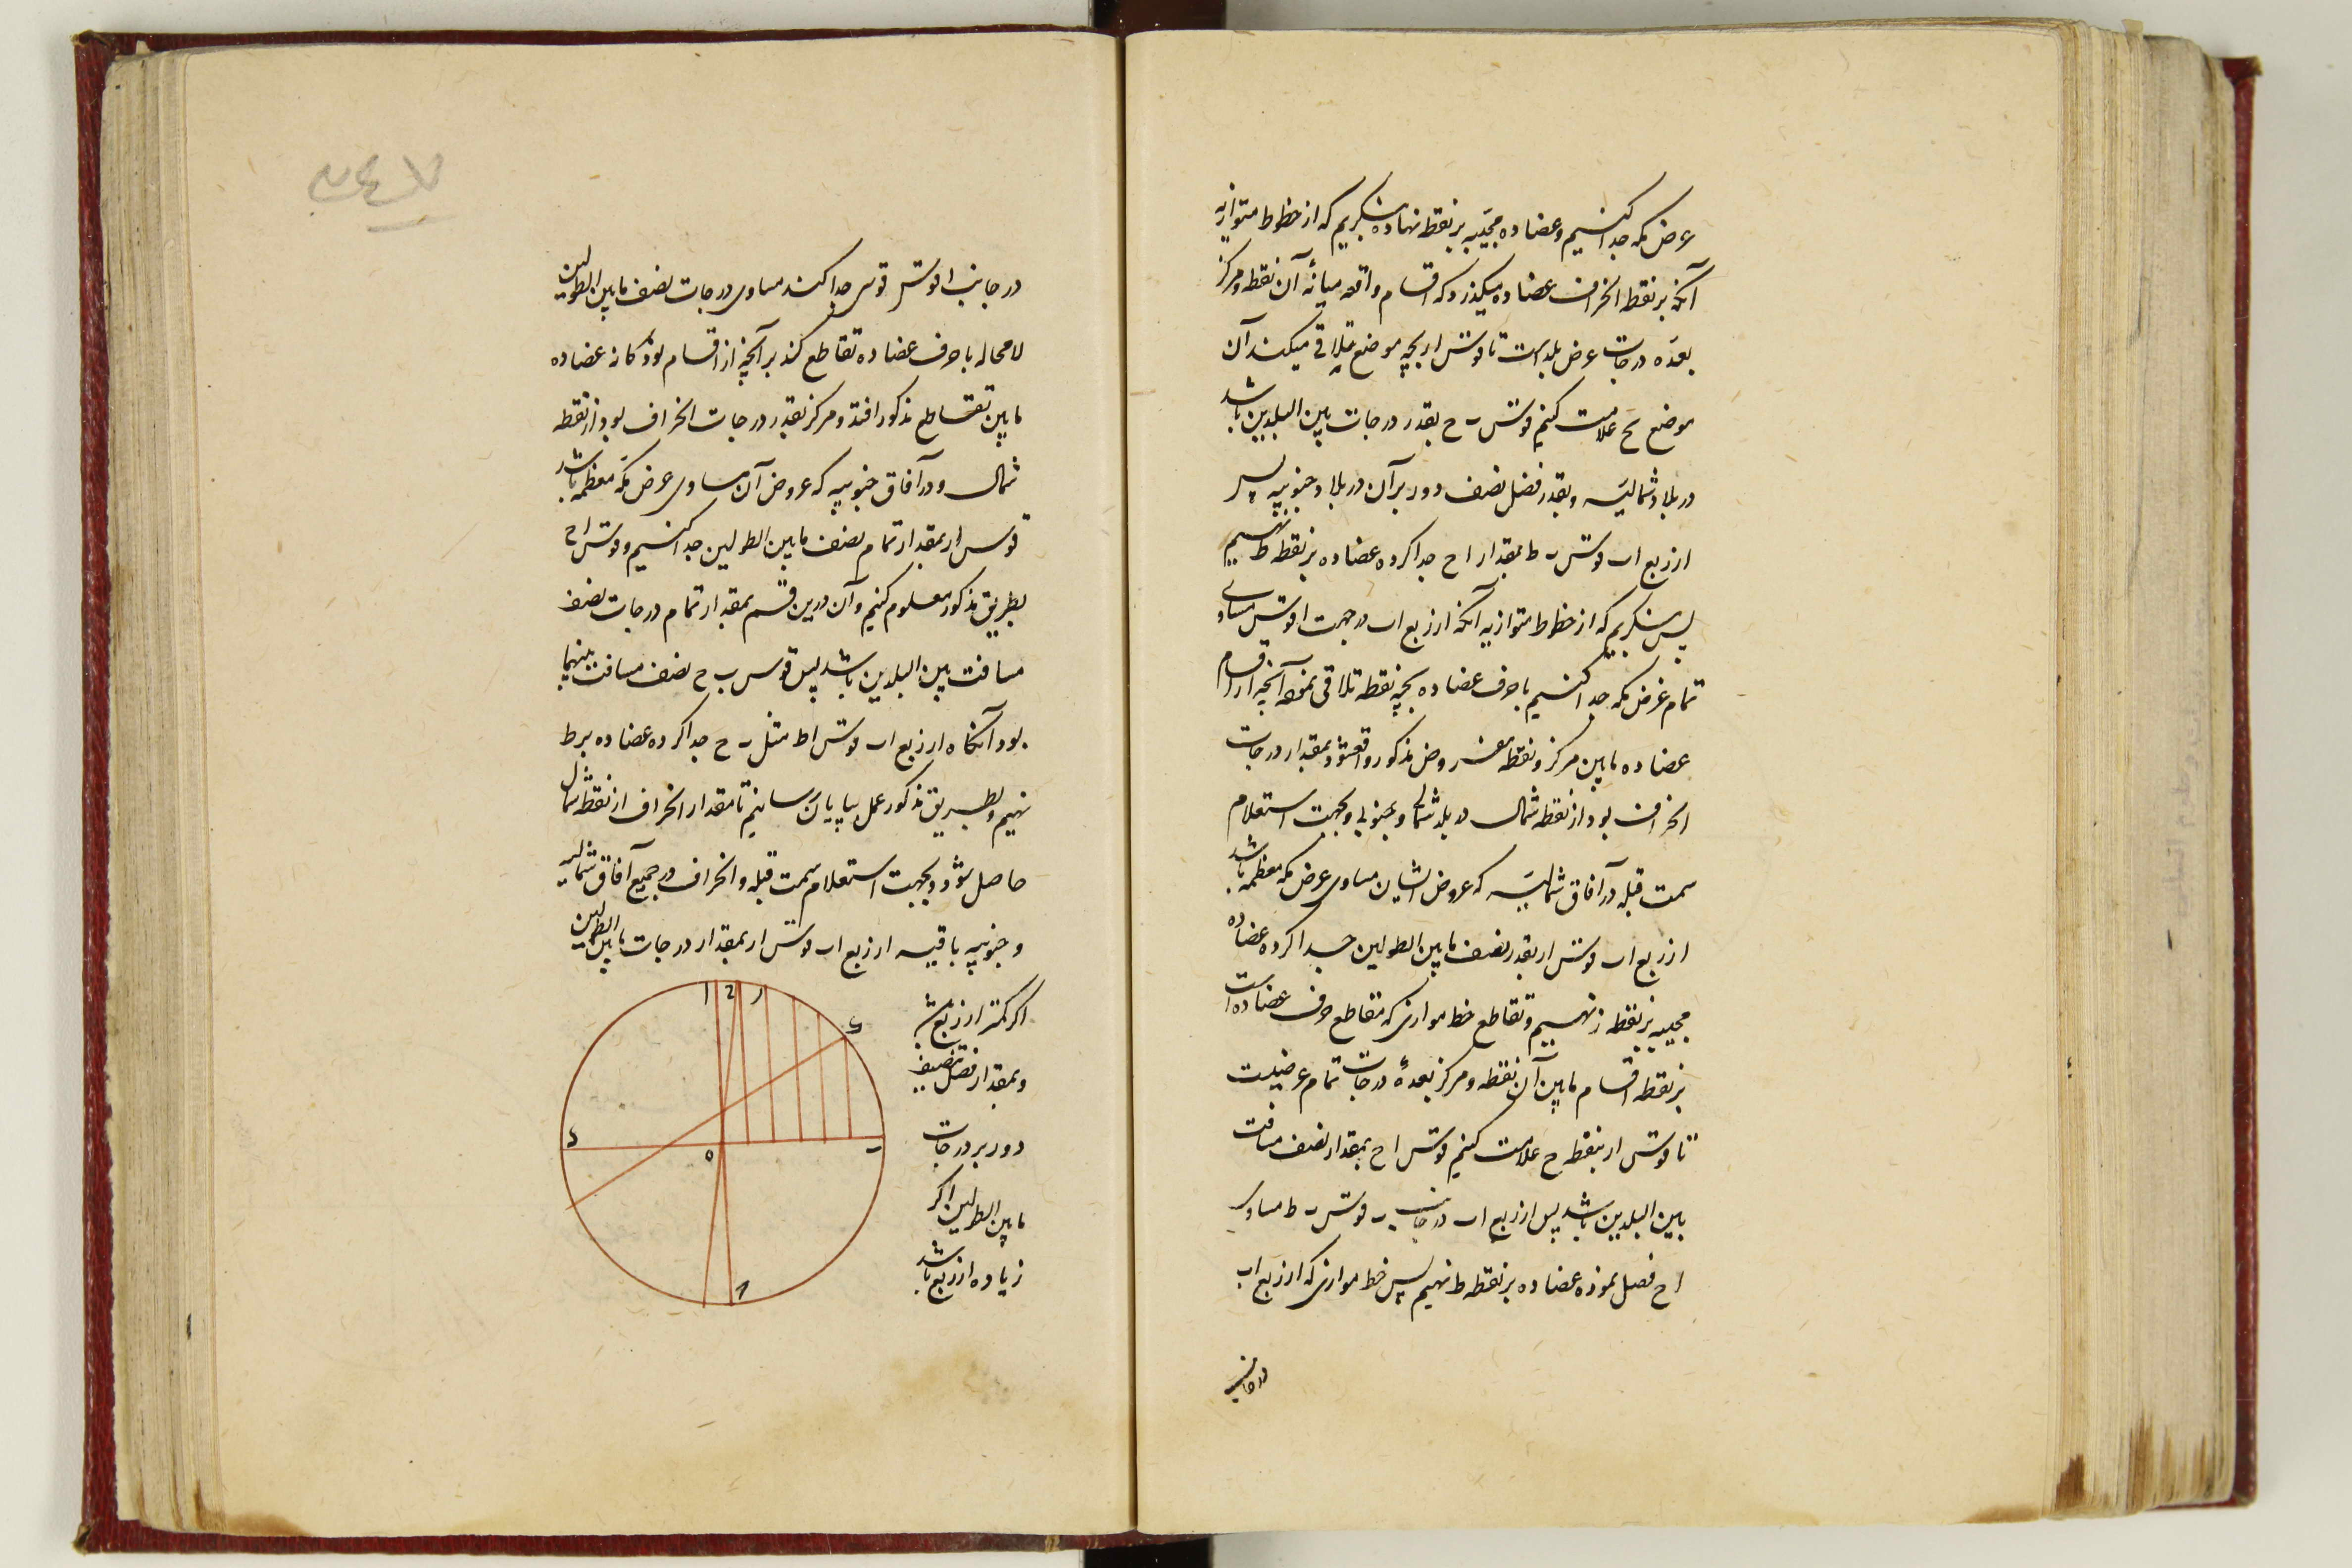 عرض مکه جدا کنیم وعضاده مجیبه بر نقطه نهاده بنگریم که از خطوط متوازیه
آنکه بر نقطه انحراف عضاده میگذرد که اقسام واقعه میانهٔ آن نقطه ومرکز
بعدهٔ درجات عرض بلد است تا قوس ار بچه موضع تلاقی میکند آن
موضع بح علامت کنیم قوس ب ح بقدر درجات بین البلدین باشد
در بلاد شمالیه وبقدر فضل نصف دور بر آن در بلاد جنوبیه پس
از ربع اب قوس ب ط بمقدار ا ح جدا کرده عضاده بر نقطه ط نهیم
پس بنگریم که از خطوط متوازیه آنکه از ربع اب در جهت ا قوس مساوی
تمام عرض مکه جدا کنیم با حرف عضاده بچه نقطه تلاقی نمود آنچه از اقسام
عضاده مابین مرکز ونقطه مفروض مذکور واقع شود بمقدار درجات
انحراف بود از نقطه شمال در بلد شمالی وجنوبی وبجهت استعلام
سمت قبله در آفاق شمالیه که عروض ایشان مساوی عرض مکه معظمه باشد
از ربع اب قوس ار بقدر نصف مابین الطولین جدا کرده عضاده
مجیبه بر نقطه ز نهیم وتقاطع خط موازی که مقاطع حرف عضاده است
بر نقطه اقسام مابین آن نقطه ومرکز بعدهٔ درجات تمام عرضیست
تا قوس ار بنقطه ح علامت کنیم قوس ا ح بمقدار نصف مسافت
بین البلدین باشد پس از ربع اب در جانب ب قوس ب ط مساوی
ا ح فصل نموده عضاده بر نقطه ط نهیم پس خط موازی که از ربع اب
در جانب
در جانب ا قوس قوسی جدا کند مساوی درجات نصف مابین الطولین
لامحاله با حرف عضاده تقاطع کند بر آنچه از اقسام بود که از عضاده
مابین تقاطع مذکور افتد ومرکز بقدر درجات انحراف بود از نقطه
شمال ودر آفاق جنوبیه که عروض آن مساوی عرض مکه معظمه باشد
قوس ار بمقدار تمام نصف مابین الطولین جدا کنیم وقوس ا ح
بطریق مذکور معلوم کنیم وآن درین قسم بمقدار تمام درجات نصف
مسافت بین البلدین باشد پس قوس ب ح نصف مسافت بینهما
بود آنگاه از ربع اب قوس اط مثل ب ح جدا کرده عضاده بر ط
نهیم وبطریق مذکور عمل بپایان رسانیم تا مقدار انحراف از نقطه شمال
حاصل شود وبجهت استعلام سمت قبله وانحراف در جمیع آفاق شمالیه
وجنوبیه باقیه از ربع اب قوس ار بمقدار درجات مابین الطولین
اگر کمتر از ربع باشد
وبمقدار فضل نصف
دور بر درجات
مابین الطولین اگر
زیاده از ربع باشد
ا
ح
ر
د
ه
ب